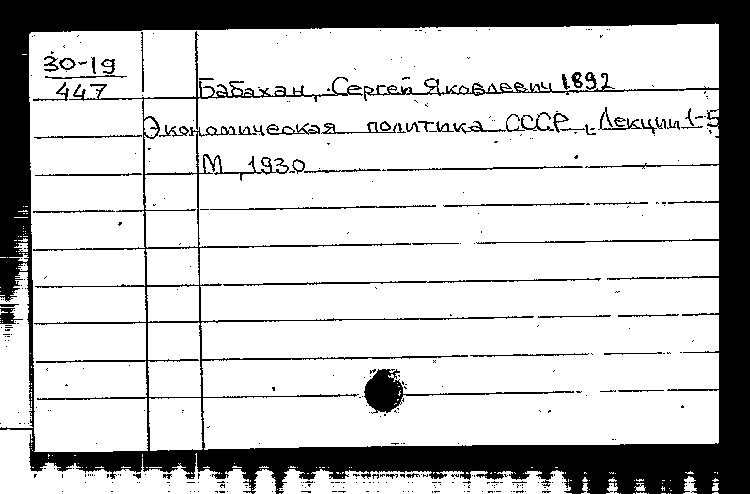 30-19
447
Бабахан, Сергей Яковлевич 1892
Экономическая политика СССР, Лекции 1-5
М, 1930